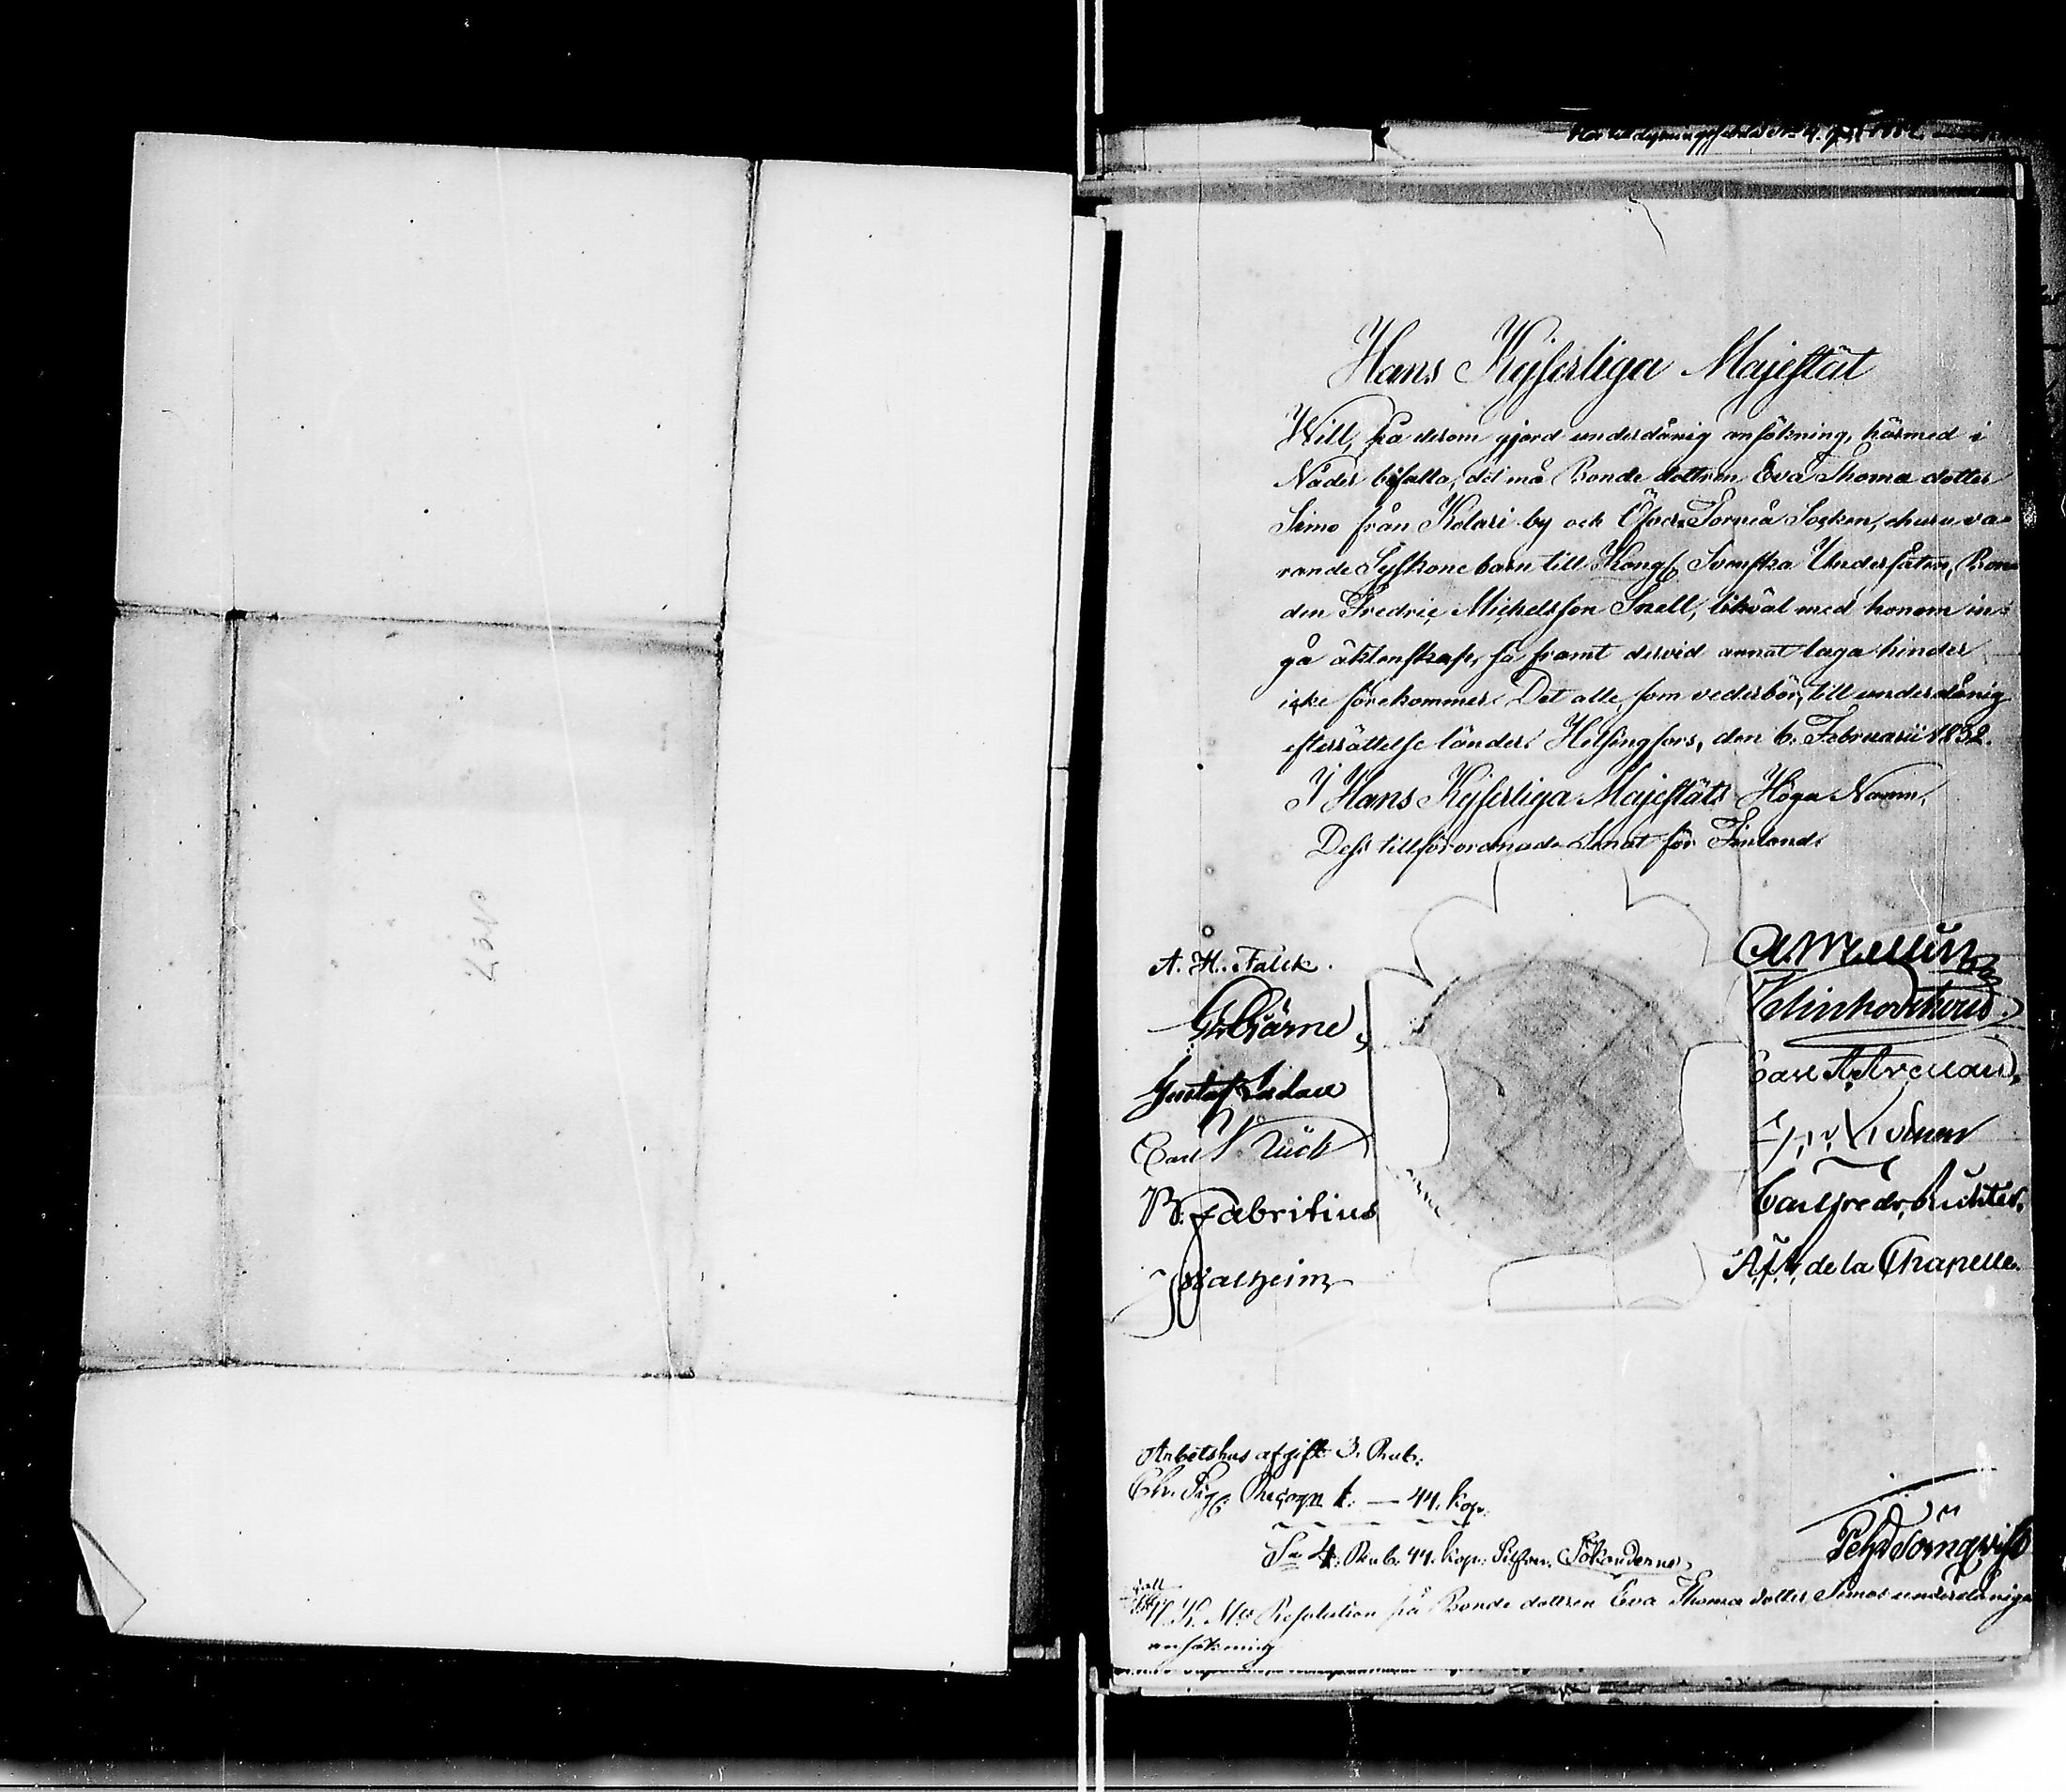 Hans Kejserliga Majestät
Will, på derom gjord underdånig ansökning, härmed i
Nåder bifalla, det må Bonde dottren Eva Thoma dotter
Simo från Kolari by och Öfver Torneå Socken, ehuru va-
rande Syskonebarn till Kongl. Svenska Undersåten, Bon-
den Fredric Michelsson Snell, likväl med honom in-
gå äktenskap, så framt dervid annat laga hinder
icke förekommer. Det alle, som vederbör, till underdånig
efterrättelse länder. Helsingfors, den 6. Februarii 1832.
I Hans Kejserliga Majestäts Höga Namn,
Dess tillförordnade Senat för Finland.
A. H. Falck.
Hjärne
Gustaf Ladau
Carl Rück
B. Fabritius
J Walheim
Klinkowström
Carl
Carl Fredr. Richter.
A. F. de la Chapelle.
Arbetshus afgift 3. Rub.
Ch. Sig. Recogn. 1. — 44. Kop.
Sa 4. Rub. 44. Kop. Silfver. Sökanderne
Pehr Törnqvist
H. K. Mts Resolution på Bonde dottren Eva Thoma dotter Simos underdåniga
ansökning